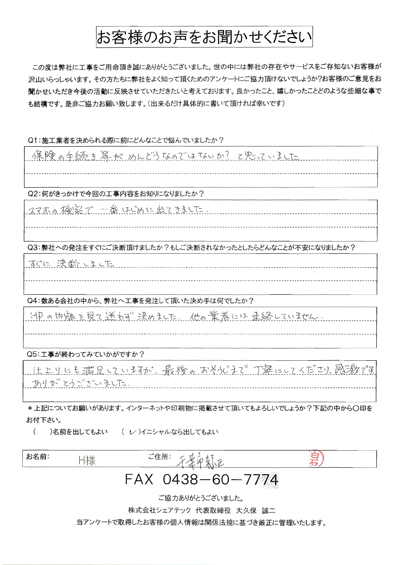 お客様のお声をお聞かせください
この度は弊社に工事をご用命頂き誠にありがとうございました。世の中には弊社の存在やサービスをご存知ないお客様が
沢山いらっしゃいます。その方たちに弊社をよく知って頂くためのアンケートにご協力頂けないでしょうか?お客様のご意見をお
聞かせいただき今後の活動に反映させていただきたいと考えております。良かったこと、嬉しかったことどのような些細な事で
も結構です。是非ご協力お願い致します。(出来るだけ具体的に書いて頂ければ幸いです)
Q1:施工業者を決められる際に前にどんなことで悩んでいましたか?
保険の手続き等がめんどうなのではないか?と思っていました
Q2:何がきっかけで今回の工事内容をお知りになりましたか?
スマホの検索で一番はじめに出てきました.
Q3:弊社への発注をすぐにご決断頂けましたか?もしご決断されなかったとしたらどんなことが不安になりましたか?
すぐに決断しました
Q4:数ある会社の中から、弊社へ工事を発注して頂いた決め手は何でしたか?
HPの内容を見て迷わず決めました.他の業者には連絡していません.
Q5:工事が終わってみていかがですか?
仕上りにも満足していますが、最後のおそうじまで丁寧にしてくださり、感激です
ありがとうございました.
*上記についてお願いがあります。インターネットや印刷物に掲載させて頂いてもよろしいでしょうか?下記の中から〇印を
お付下さい。
( )名前を出してもよい (✓)イニシャルなら出してもよい
お名前: H様 ご住所: 千葉市 白石
FAX 0438-60-7774
ご協力ありがとうございました。
株式会社シェアテック 代表取締役 大久保 誠二
当アンケートで取得したお客様の個人情報は関係法規に基づき厳正に管理いたします。